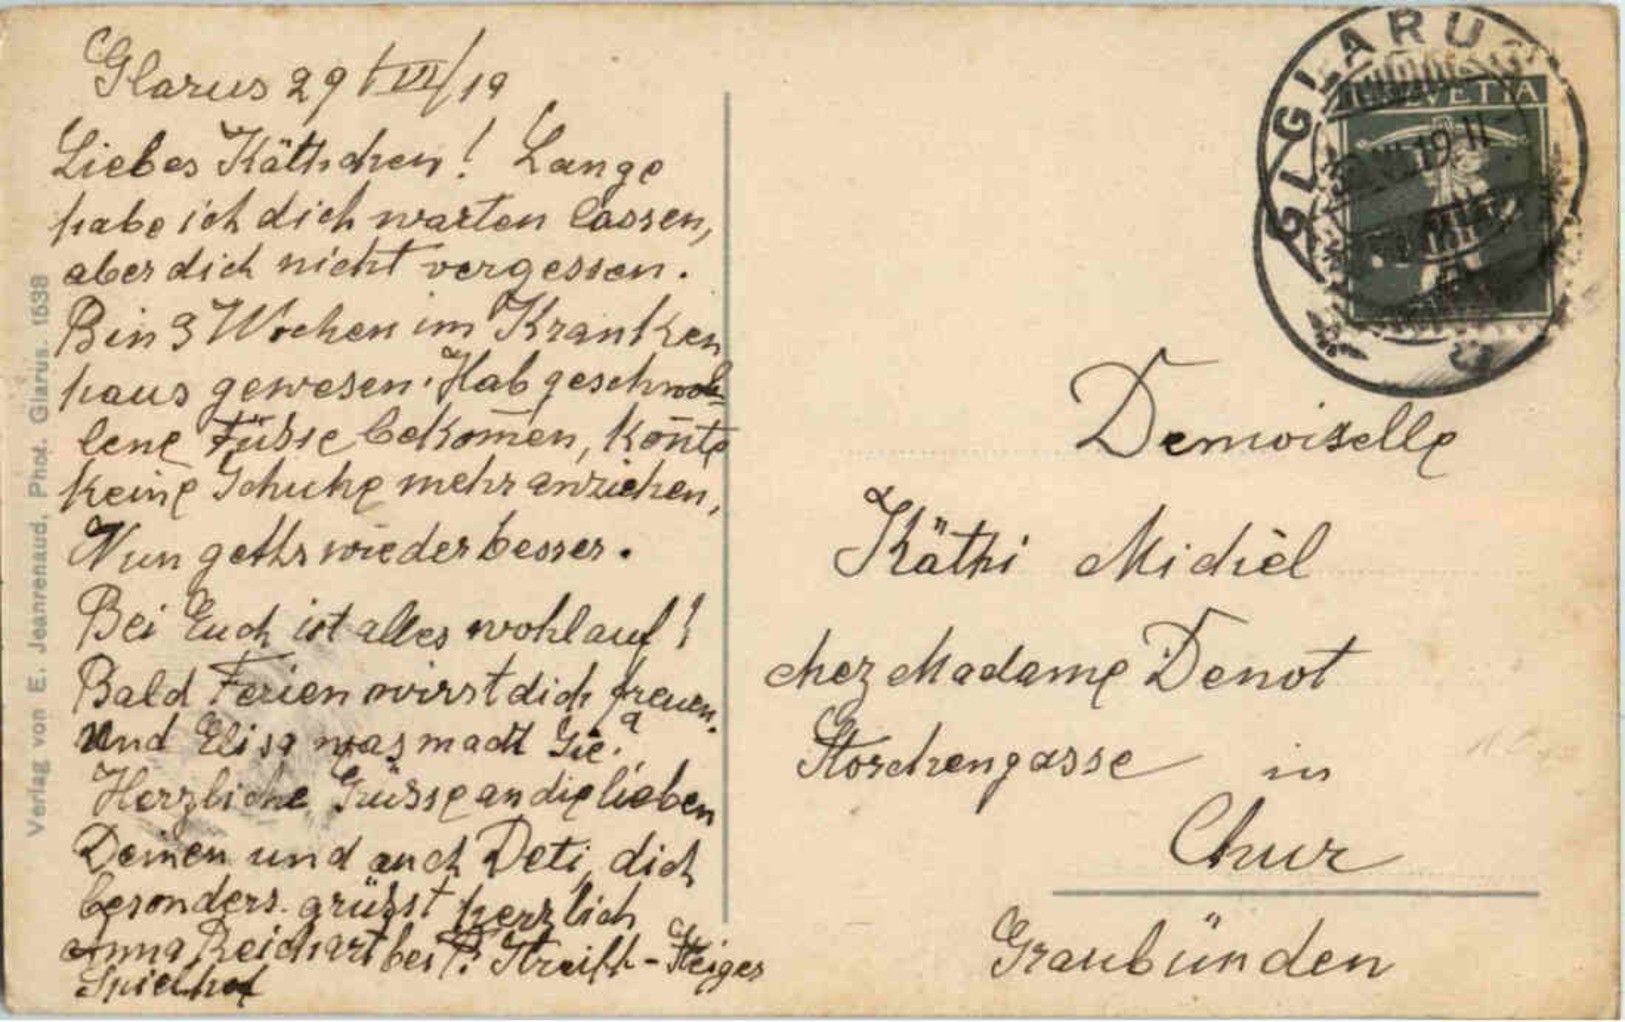 Glarus 29/VII/19
Liebes Käthchen! Lange
habe ich dich warten lassen,
aber dich nicht vergessen.
Bin 3 Wochen im Kranken
haus gewesen. Hab geschwol-
lene Füsse bekom̅en, kon̅te
keine Schuhe mehr anziehen,
Nun gehts wieder besser.
Bei Euch ist alles wohlauf!
Bald Ferien wirst dich freuen.
Und Elisa was macht Sie?
Herzliche Grüsse an die lieben
Deinen und auch Deti, dich
besonders grüsst herzlich
Anna Reichart bei P. Streiff-Steiger
Spielhof
Verlag von E. Jeanrenaud, Phot. Glarus. 1538
GLARUS
HELVETIA
19.11
Demoiselle
Käthi Michèl
chez Madame Denot
Storchengasse in
Chur
Graubünden